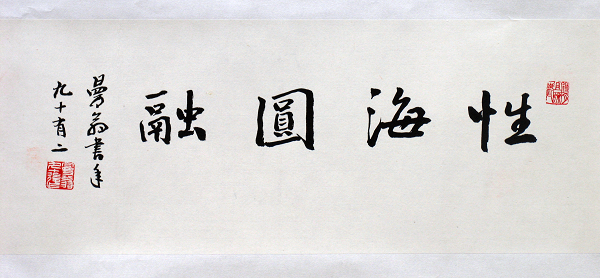 性海圓融
曼翁書年
九十有二